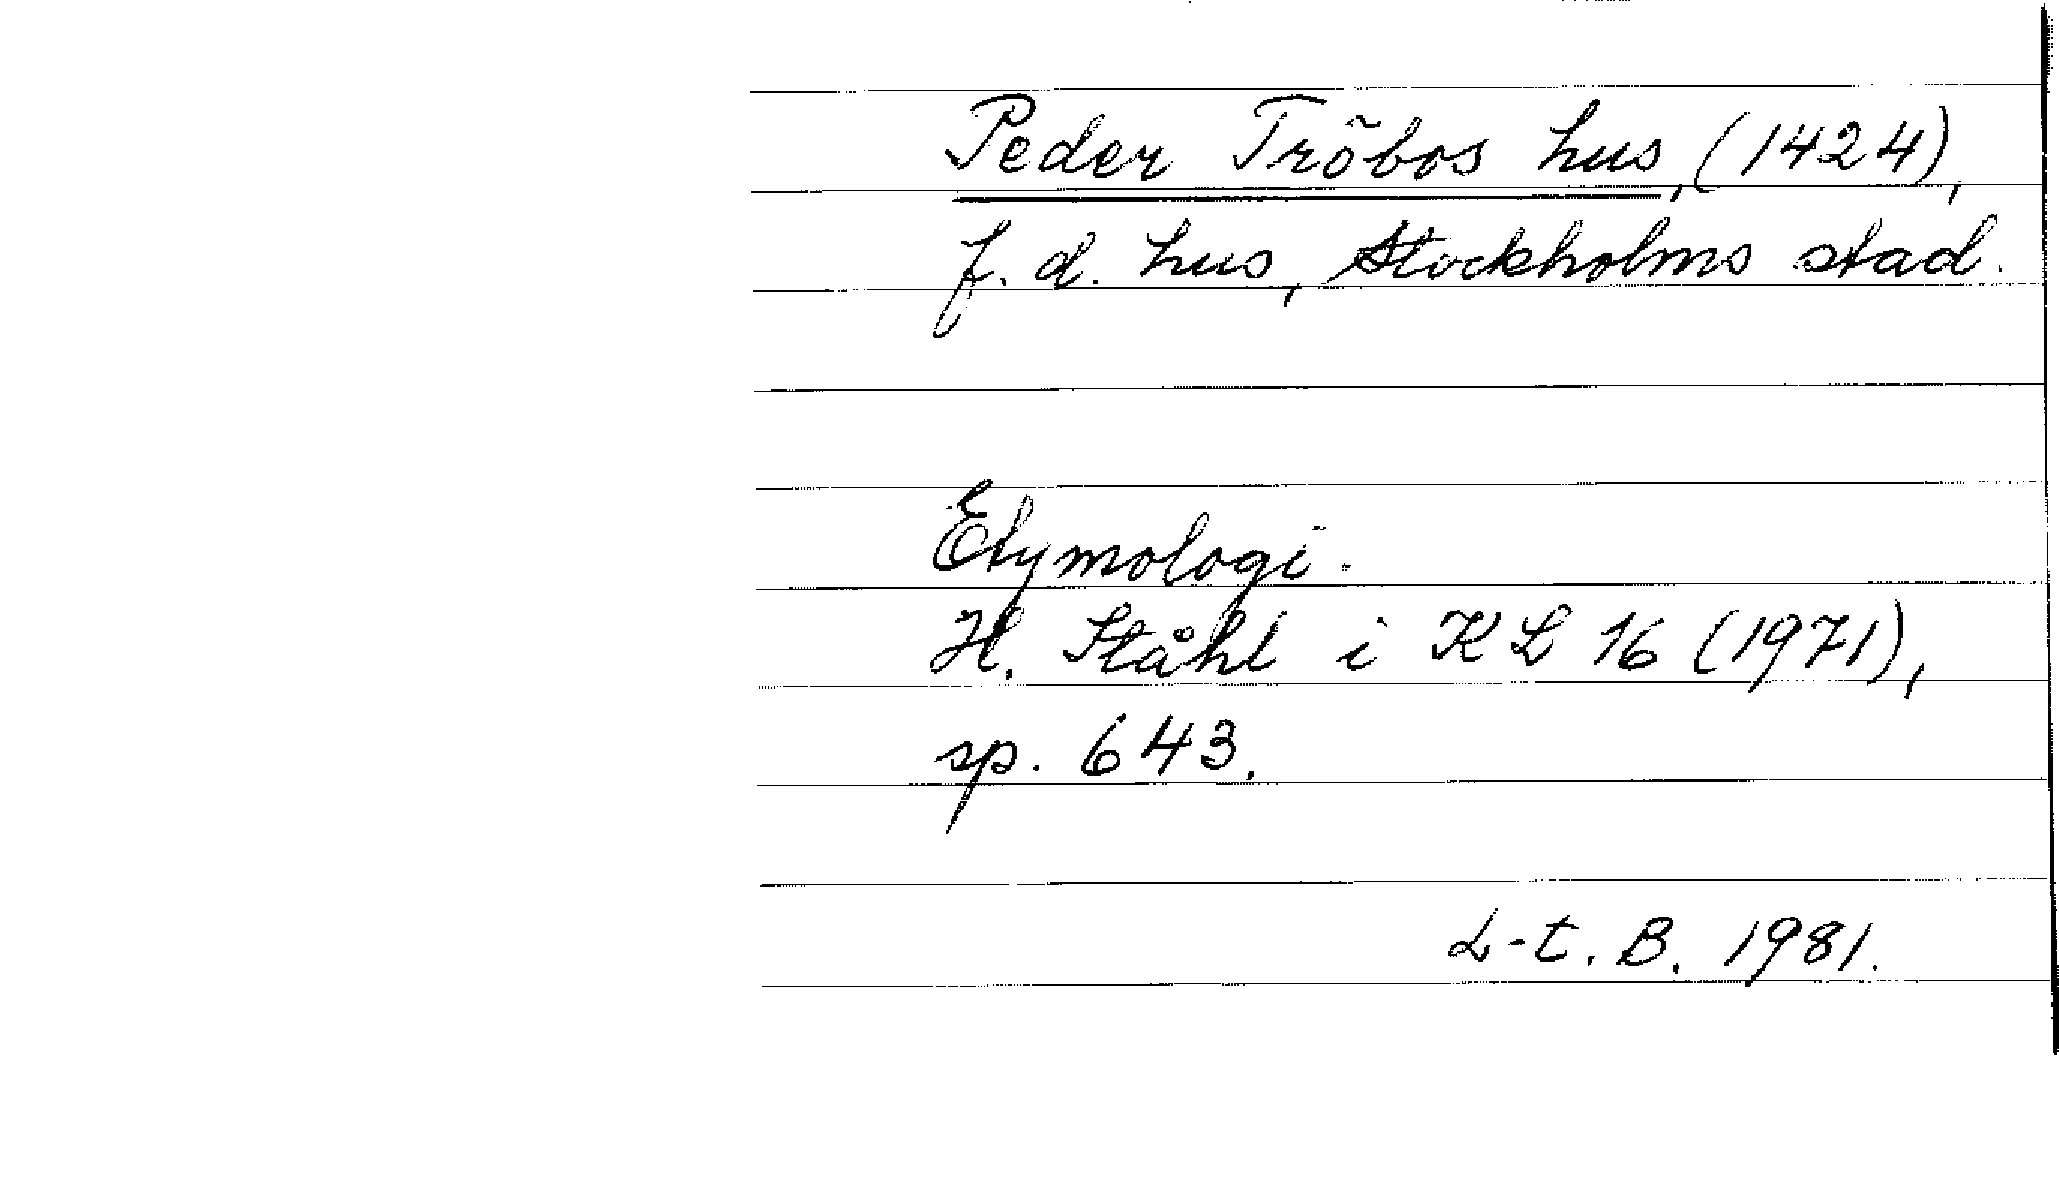 Peder Tröbos hus, (1424),
f. d. hus, Stockholms stad.
Etymologi.
H. Ståhl i KL 16 (1971),
sp. 643.
L-t. B. 1981.